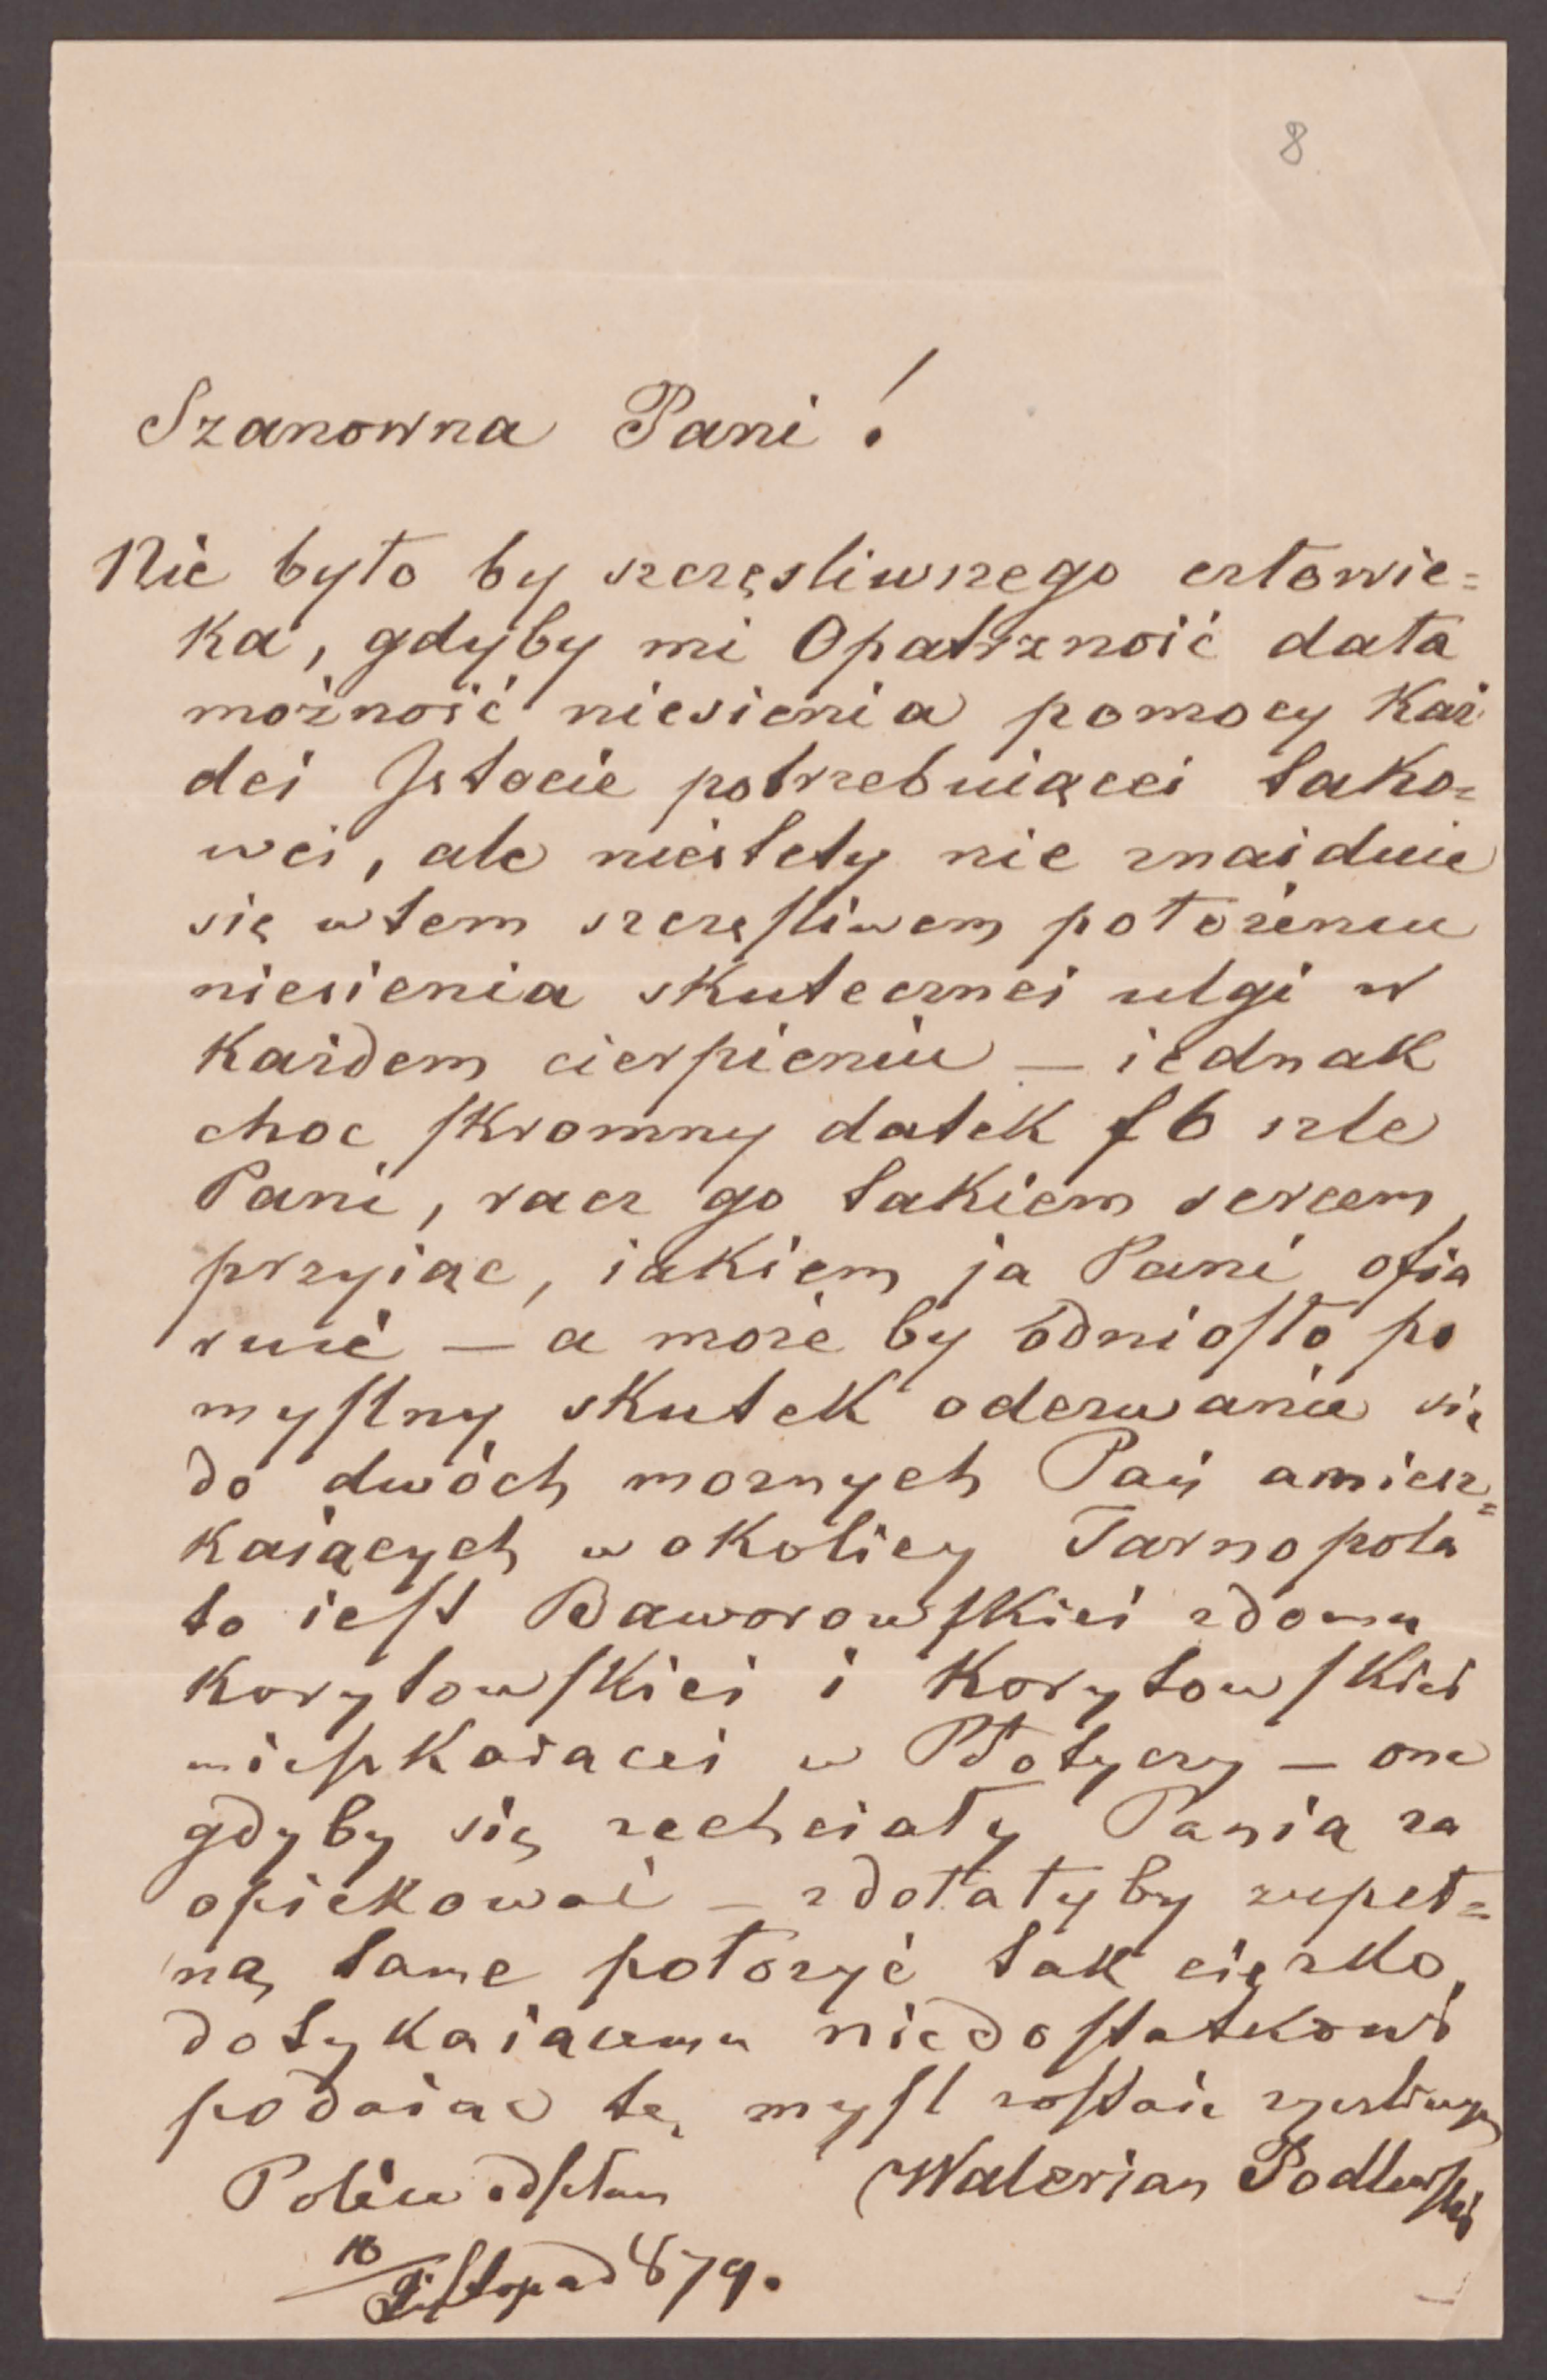 8
Szanowna Pani!
Nie było by szczęsliwszego człowie=
ka, gdyby mi Opatrzność dała
możność niesienia pomocy Każ
dei Istocie potrzebuiącei tako=
wei, ale niestety nie znaiduie
się w tem szczęsliwem położeniu
niesienia skutecznei ulgi w
Każdem cierpieniu — iednak
choc skromny datek f 6 szle
Pani, racz go takiem sercem
przyiąc, iakiem ja Pani ofia
ruię — a może by odniosło po
myslny skutek odezwanie się
do dwóch możnych Pań amiesz=
kaiących w okolicy Tarnopola
to iest Baworowskiei zdomu
Korytowskiei i Korytowskiei
mieszkaiacei w Płotyczy — one
gdyby się zechciały Panią za
opiekować — zdołałyby zupeł=
ną tame położyć tak ciężko
dotykaiącemu niedostatkowi
podaiac tę mysl zostaie
Walerian Podlewski
10/Listopad 879.